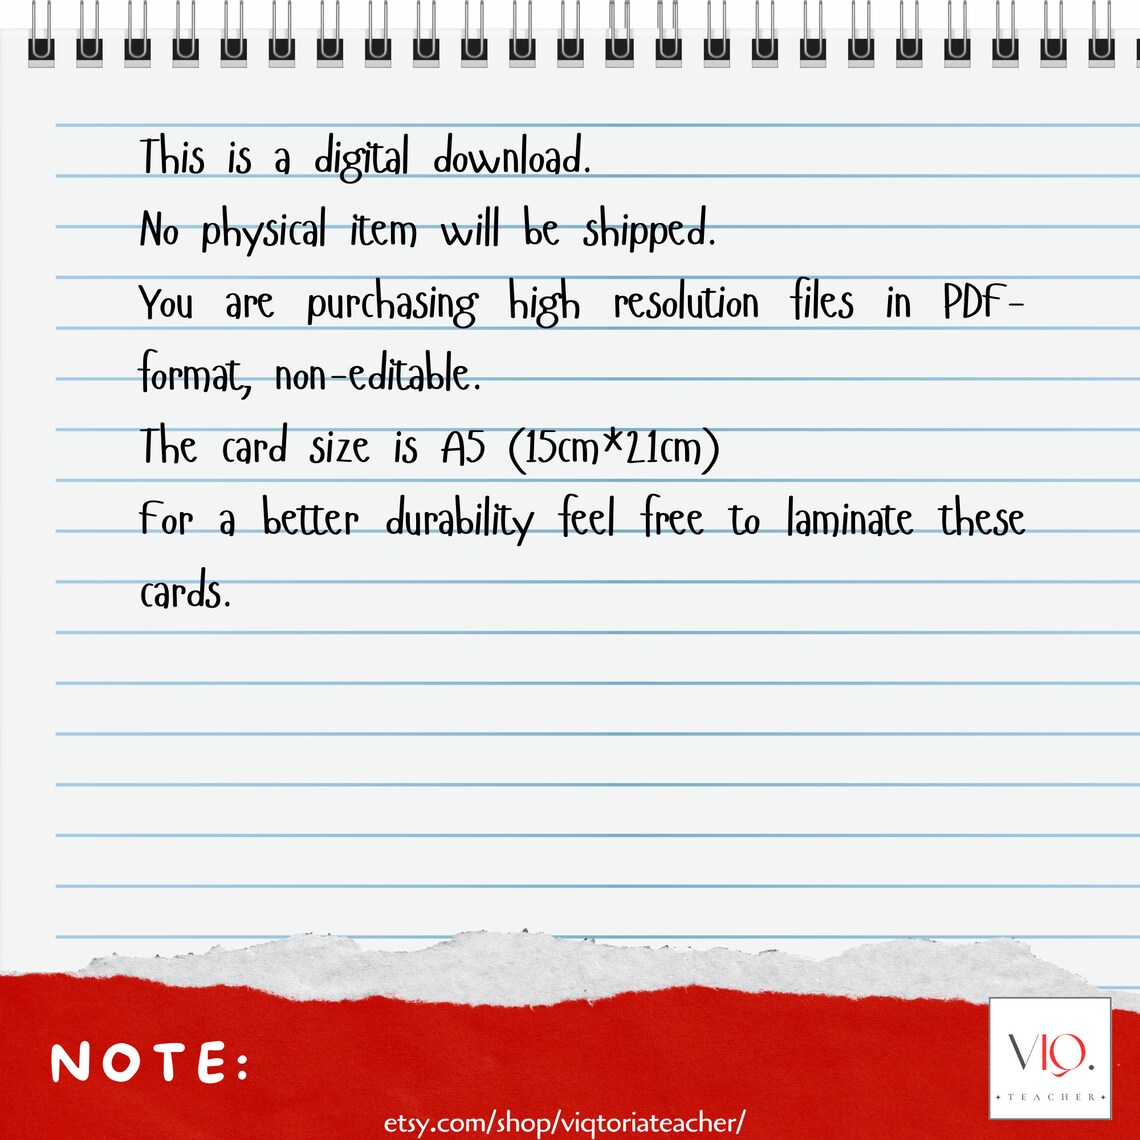 This is a digital download.
No physical item will be shipped.
You are purchasing high resolution files in PDF-
format, non-editable.
The card size is A5 (15cm*21cm)
For a better durability feel free to laminate these
cards.
NOTE:
VIQ.
TEACHER
etsy.com/shop/viqtoriateacher/